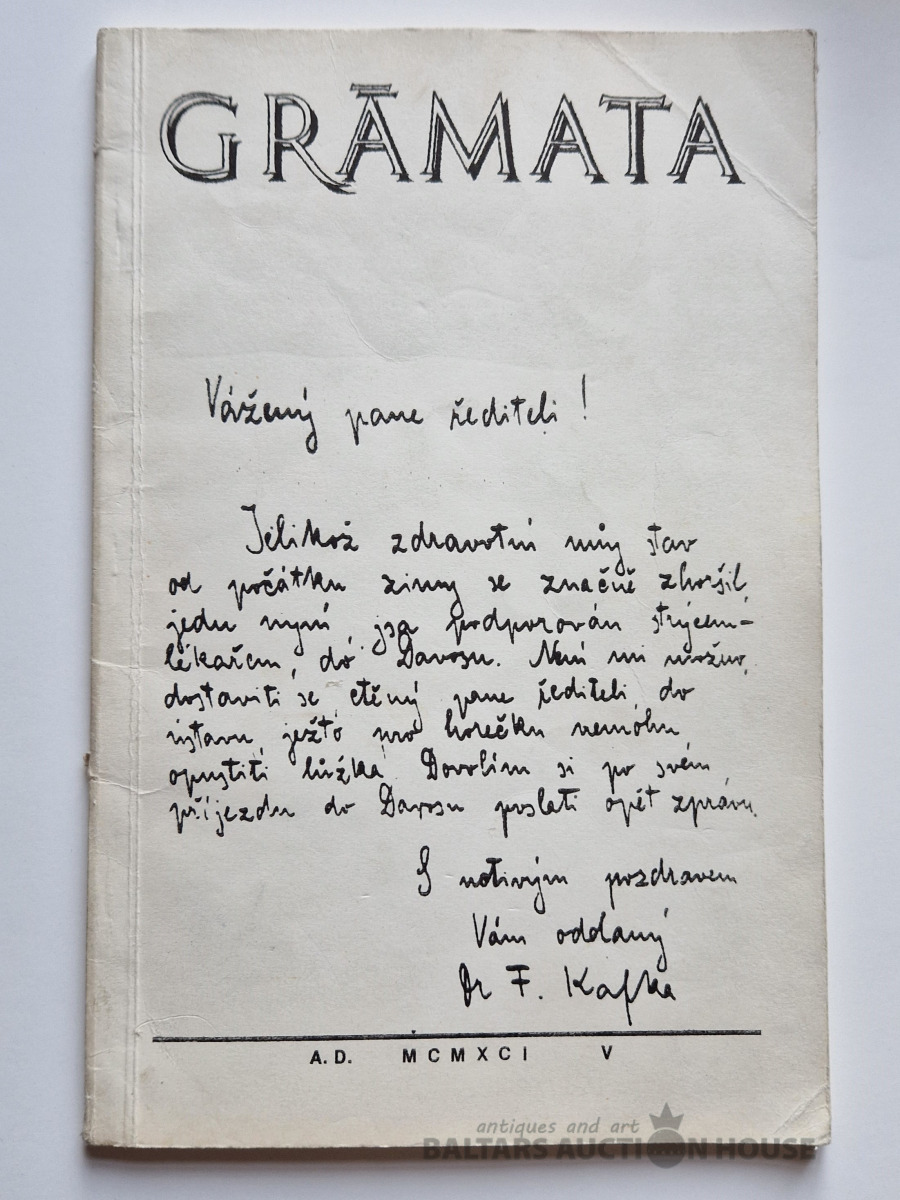 GRĀMATA
Vážený pane řediteli!
Jelikož zdravotní můj stav
od počátku zimy se značně zhoršil,
jedu nyní, jsa podporován strýcem-
lékařem, do Davosu. Není mi možno,
dostaviti se ctěný pane řediteli do
ústavu, ježto pro horečku nemohu
opustiti lůžka. Dovolím si po svém
příjezdu do Davosu poslati opět zprávu.
S uctivým pozdravem
Vám oddaný
Dr F. Kafka
A.D. MCMXCI V
antiques and art
BALTARS AUCTION HOUSE